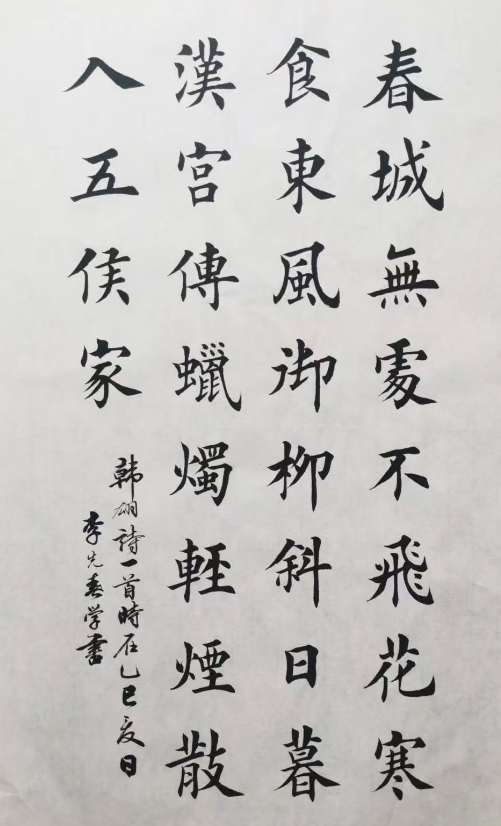 春城無處不飛花寒
食東風御柳斜日暮
漢宮傳蠟燭輕煙散
入五侯家
韩翃詩一首時在乙巳夏日
李先春学書